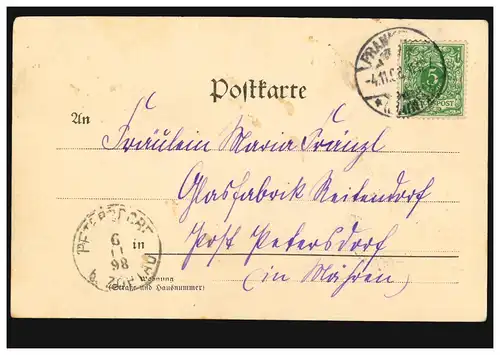 Postkarte
An Fräulein Maria Fränzl
Glasfabrik Reitendorf
in Post Petersdorf
(in Mähren)
Wohnung
(Straße und Hausnummer)
FRANK
-4.11.
5
POST
PETERSDORF
6
11
98